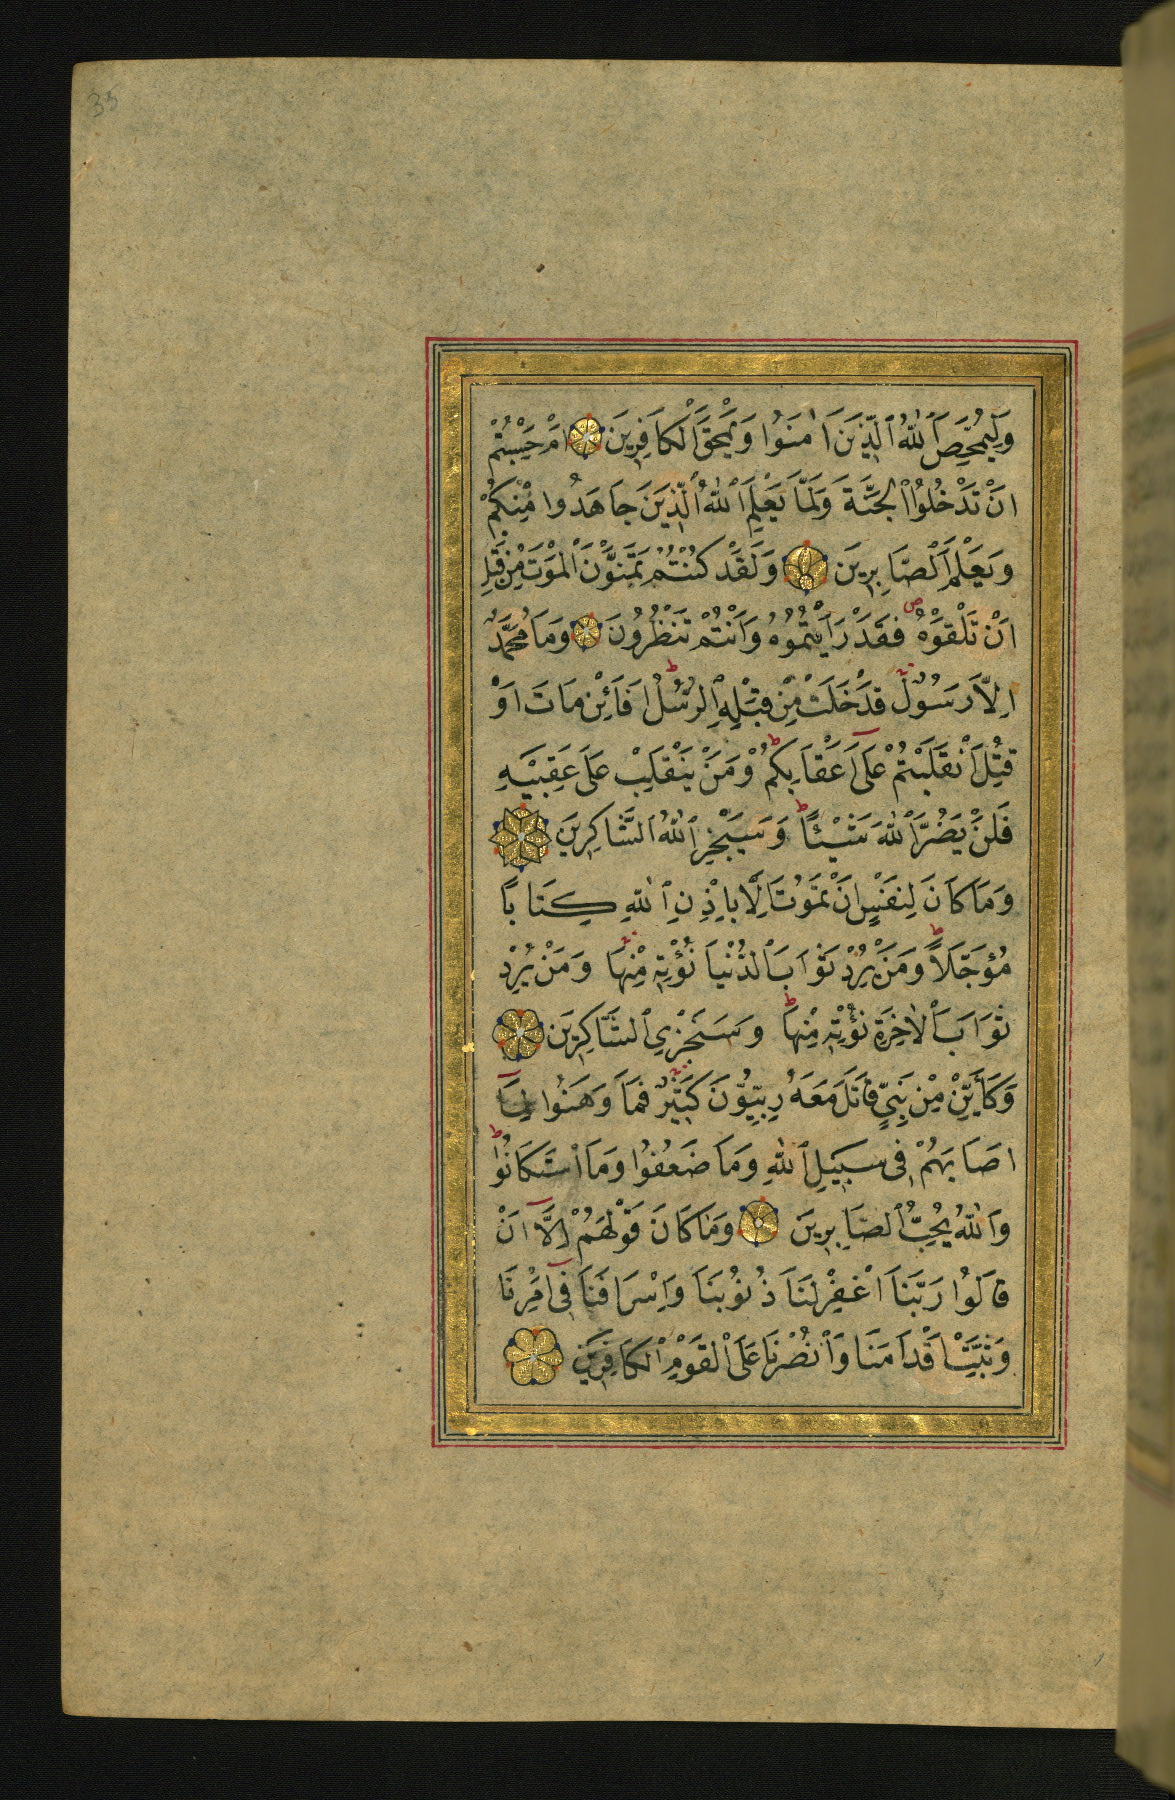 35
وَلِيُمَحِّصَ اللّٰهُ الَّذِينَ اٰمَنُوا وَيَمْحَقَ الْكَافِرِينَ اَمْ حَسِبْتُمْ
اَنْ تَدْخُلُوا الْجَنَّةَ وَلَمَّا يَعْلَمِ اللّٰهُ الَّذِينَ جَاهَدُوا مِنْكُمْ
وَيَعْلَمَ الصَّابِرِينَ وَلَقَدْ كُنْتُمْ تَمَنَّوْنَ الْمَوْتَ مِنْ قَبْلِ
اَنْ تَلْقَوْهُ ص فَقَدْ رَاَيْتُمُوهُ وَاَنْتُمْ تَنْظُرُونَ وَمَا مُحَمَّدٌ
اِلَّا رَسُولٌ قَدْ خَلَتْ مِنْ قَبْلِهِ الرُّسُلُ ط اَفَائِنْ مَاتَ اَوْ
قُتِلَ انْقَلَبْتُمْ عَلَى اَعْقَابِكُمْ ط وَمَنْ يَنْقَلِبْ عَلَى عَقِبَيْهِ
فَلَنْ يَضُرَّ اللّٰهَ شَيْئًا ط وَسَيَجْزِي اللّٰهُ الشَّاكِرِينَ
وَمَا كَانَ لِنَفْسٍ اَنْ تَمُوتَ اِلَّا بِاِذْنِ اللّٰهِ كِتَابًا
مُؤَجَّلًا ط وَمَنْ يُرِدْ ثَوَابَ الدُّنْيَا نُؤْتِهِ مِنْهَا وَمَنْ يُرِدْ
ثَوَابَ الْاٰخِرَةِ نُؤْتِهِ مِنْهَا ط وَسَنَجْزِي الشَّاكِرِينَ
وَكَاَيِّنْ مِنْ نَبِيٍّ قَاتَلَ مَعَهُ رِبِّيُّونَ كَثِيرٌ فَمَا وَهَنُوا لِمَا
اَصَابَهُمْ فِي سَبِيلِ اللّٰهِ وَمَا ضَعُفُوا وَمَا اسْتَكَانُوا ط
وَاللّٰهُ يُحِبُّ الصَّابِرِينَ وَمَا كَانَ قَوْلَهُمْ اِلَّا اَنْ
قَالُوا رَبَّنَا اغْفِرْ لَنَا ذُنُوبَنَا وَاِسْرَافَنَا فِي اَمْرِنَا
وَثَبِّتْ اَقْدَامَنَا وَانْصُرْنَا عَلَى الْقَوْمِ الْكَافِرِينَ